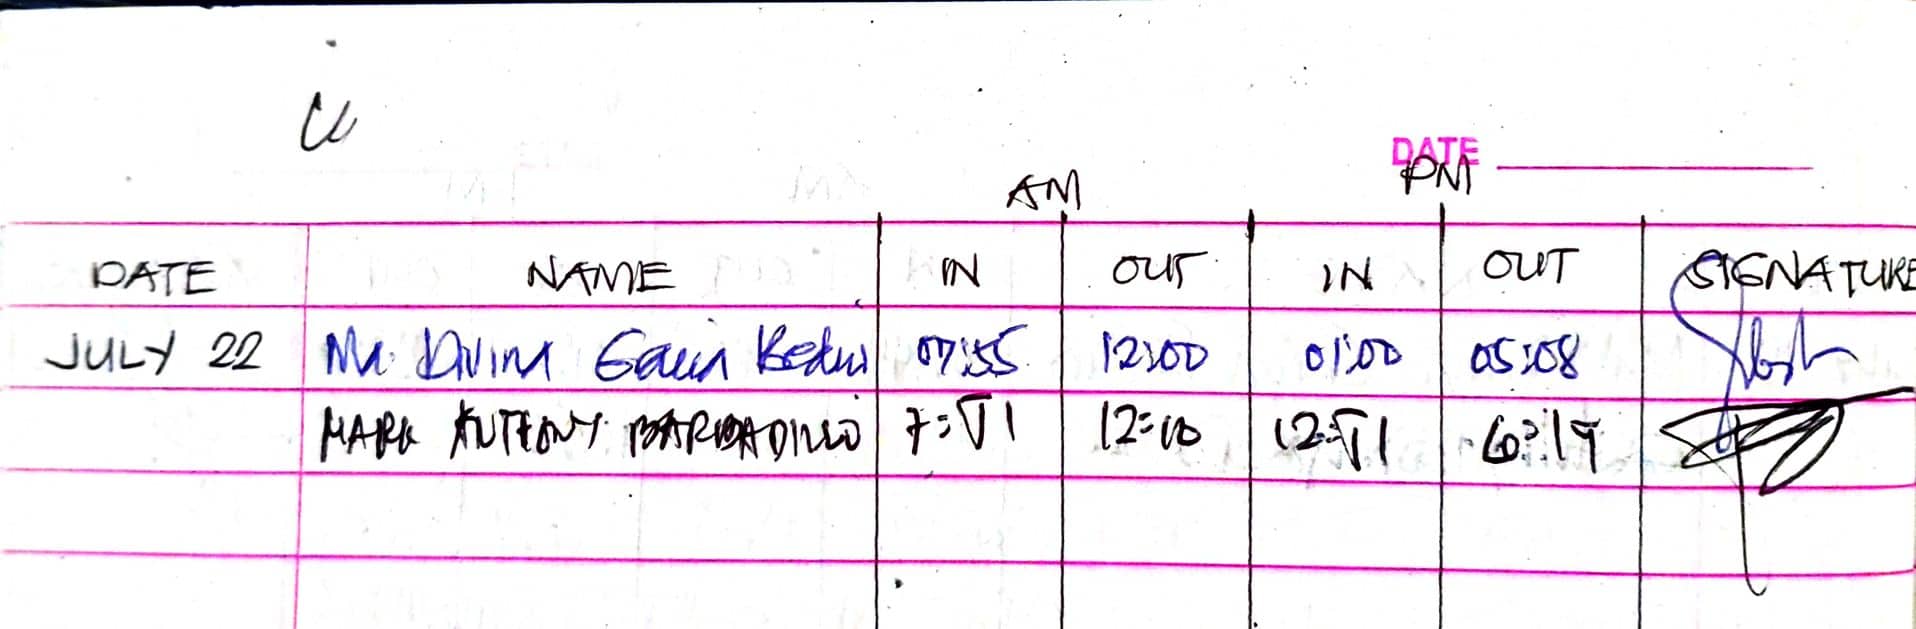 DATE
AM PM
DATE NAME IN OUT IN OUT SIGNATURE
JULY 22 Ma. Divina 07:55 12:00 01:00 05:08
MARK ANTHONY BARBADILLO 7:51 12:10 12:51